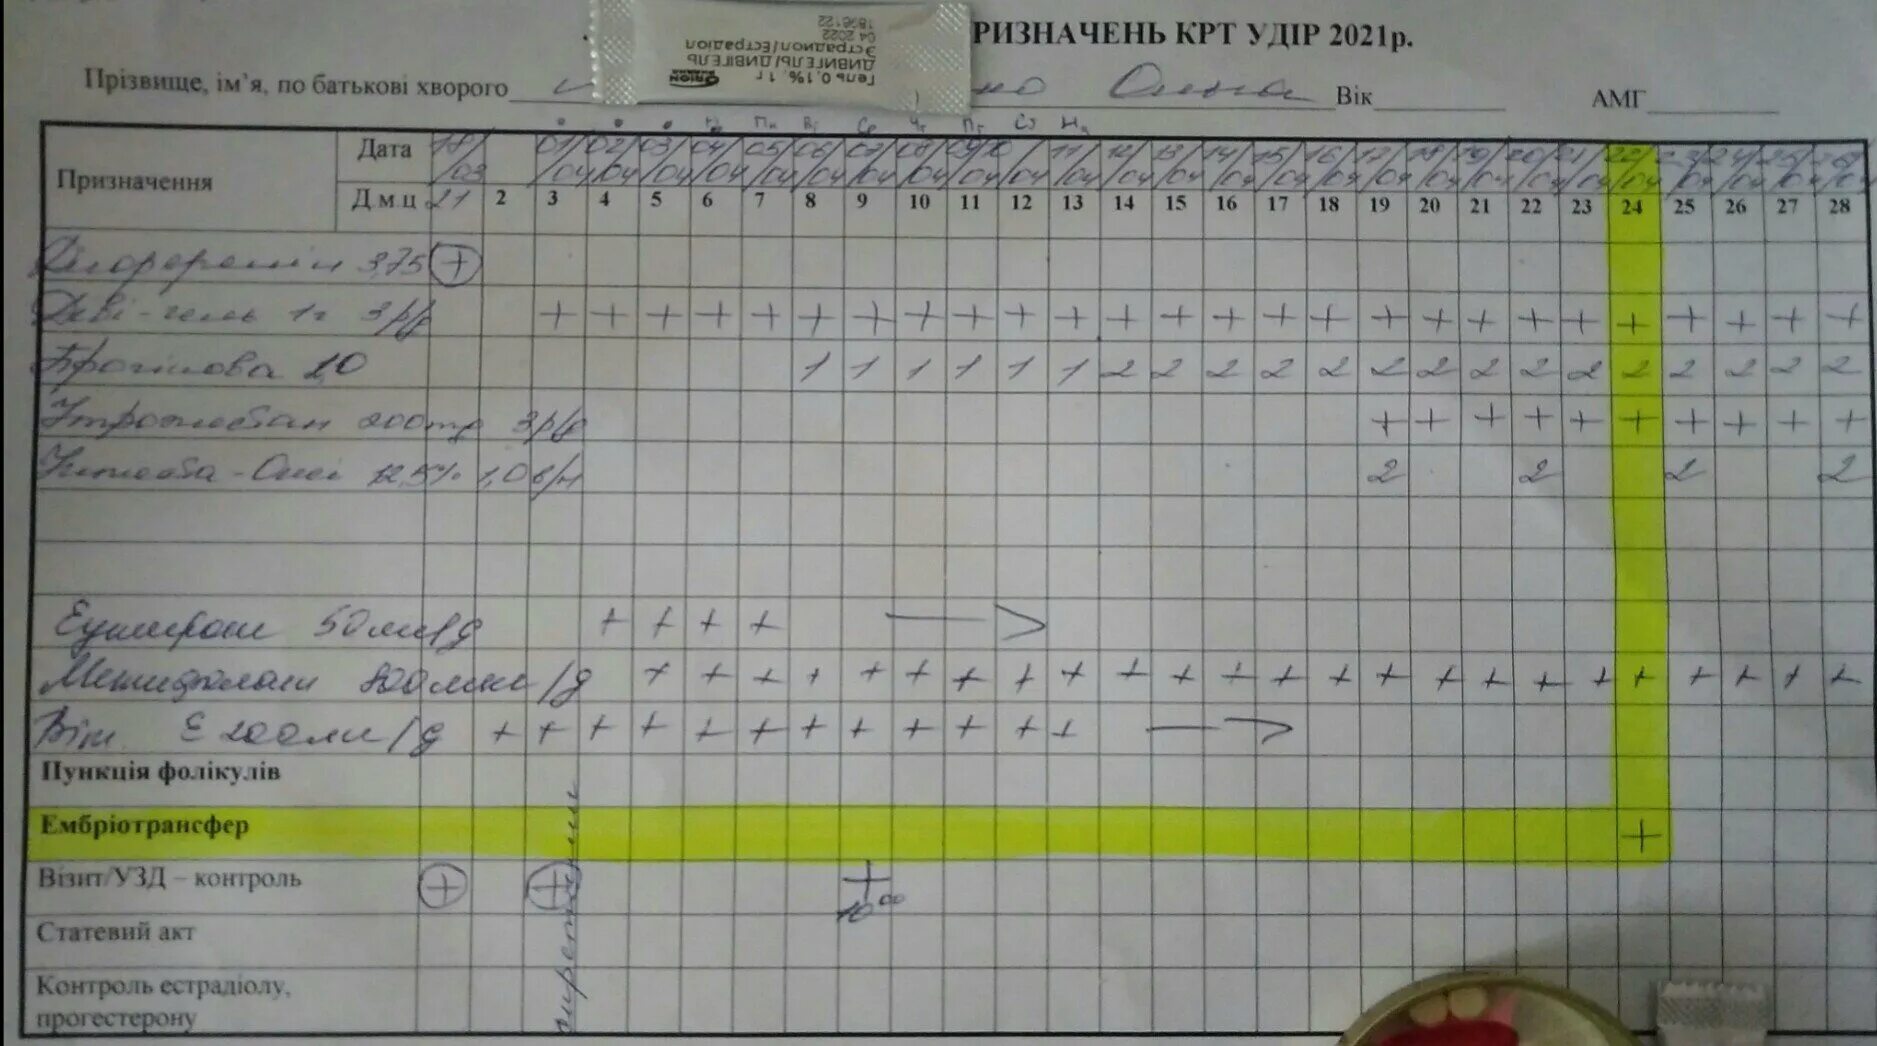 РИЗНАЧЕНЬ КРТ УДІР 2021р.
Гель 0,1%, 1 г
ДИВИГЕЛЬ/ДИВІГЕЛЬ
Эстрадиол/Естрадіол
04 2022
1896122
ORION
PHARMA
Прізвище, ім'я, по батькові хворого Вік АМГ
Пн Вт Ср Чт Пт Сб Нд
Призначення Дата 18/03 01/04 02/04 03/04 04/04 05/04 06/04 07/04 08/04 09/04 10/04 11/04 12/04 13/04 14/04 15/04 16/04 17/04 18/04 19/04 20/04 21/04 22/04 23/04 24/04 25/04 26/04
Д м.ц 21 2 3 4 5 6 7 8 9 10 11 12 13 14 15 16 17 18 19 20 21 22 23 24 25 26 27 28
3,75 +
Диві-гель 1г 3 р/д + + + + + + + + + + + + + + + + + + + + + + + + + +
Прогінова 1 1 1 1 1 1 2 2 2 2 2 2 2 2 2 2 2 2 2 2 2
Утрожестан 200 3 р/д + + + + + + + + + +
12,5% 1,0 в/м 2 2 2 2
50 + + + + →
800 + + + + + + + + + + + + + + + + + + + + + + + +
Віт. Е 200 + + + + + + + + + + + + →
Пункція фолікулів
Ембріотрансфер +
Візит/УЗД – контроль + + + 10 00
Статевий акт
Контроль естрадіолу,
прогестерону